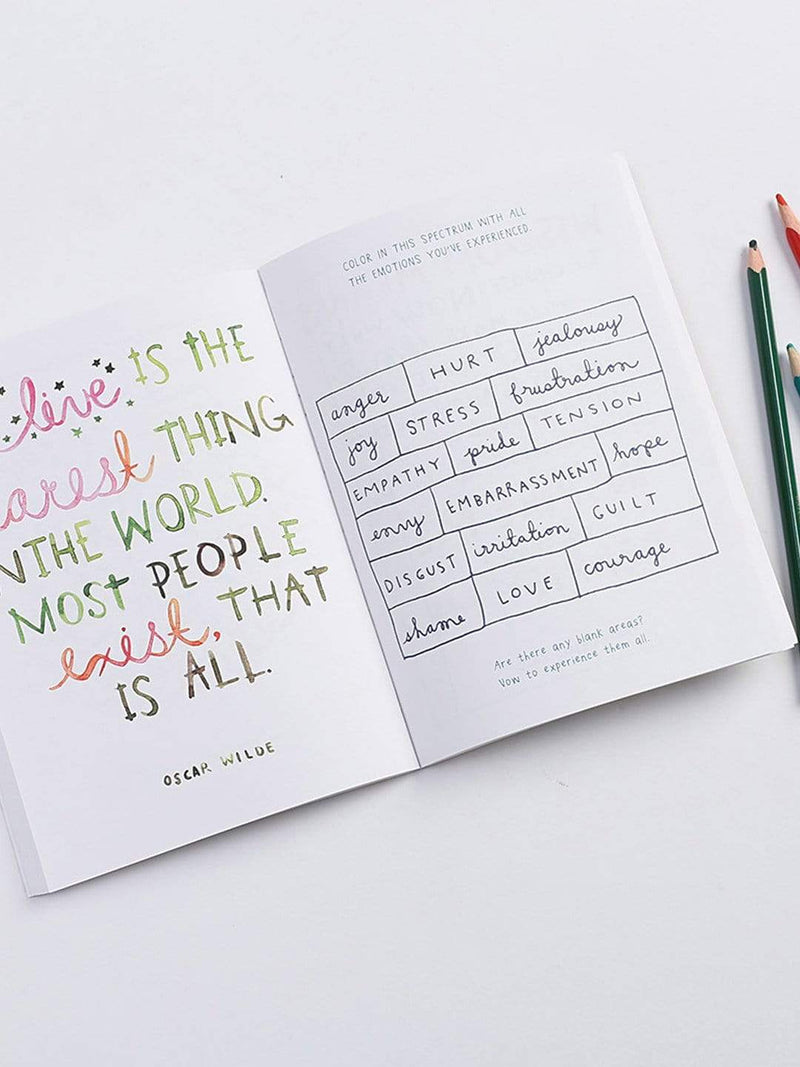 live IS THE
arest THING
N THE WORLD.
MOST PEOPLE
exist, THAT
IS ALL.
OSCAR WILDE
COLOR IN THIS SPECTRUM WITH ALL
THE EMOTIONS YOU'VE EXPERIENCED.
anger HURT jealousy
joy STRESS frustration
EMPATHY pride TENSION
envy EMBARRASSMENT hope
DISGUST irritation GUILT
shame LOVE courage
Are there any blank areas?
Vow to experience them all.